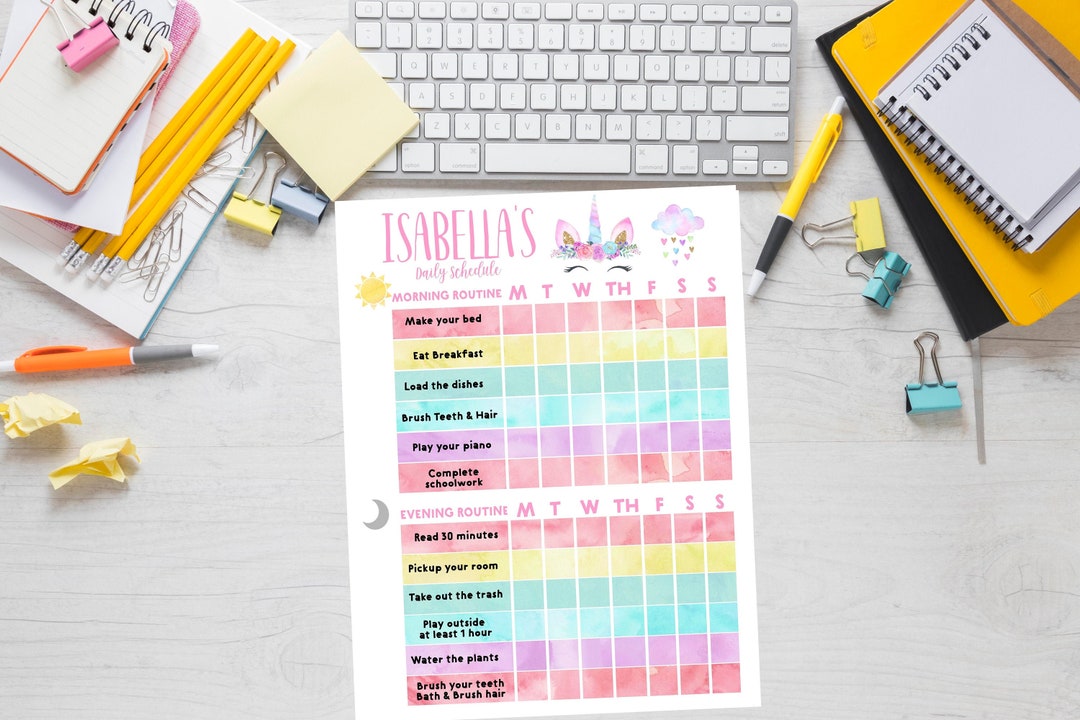 delete
Q W E R T Y U I O P
A S D F G H J K L
Z X C V B N M
shift
option command command option
ISABELLA'S
Daily Schedule
MORNING ROUTINE M T W TH F S S
Make your bed
Eat Breakfast
Load the dishes
Brush Teeth & Hair
Play your piano
Complete
schoolwork
EVENING ROUTINE M T W TH F S S
Read 30 minutes
Pickup your room
Take out the trash
Play outside
at least 1 hour
Water the plants
Brush your teeth
Bath & Brush hair